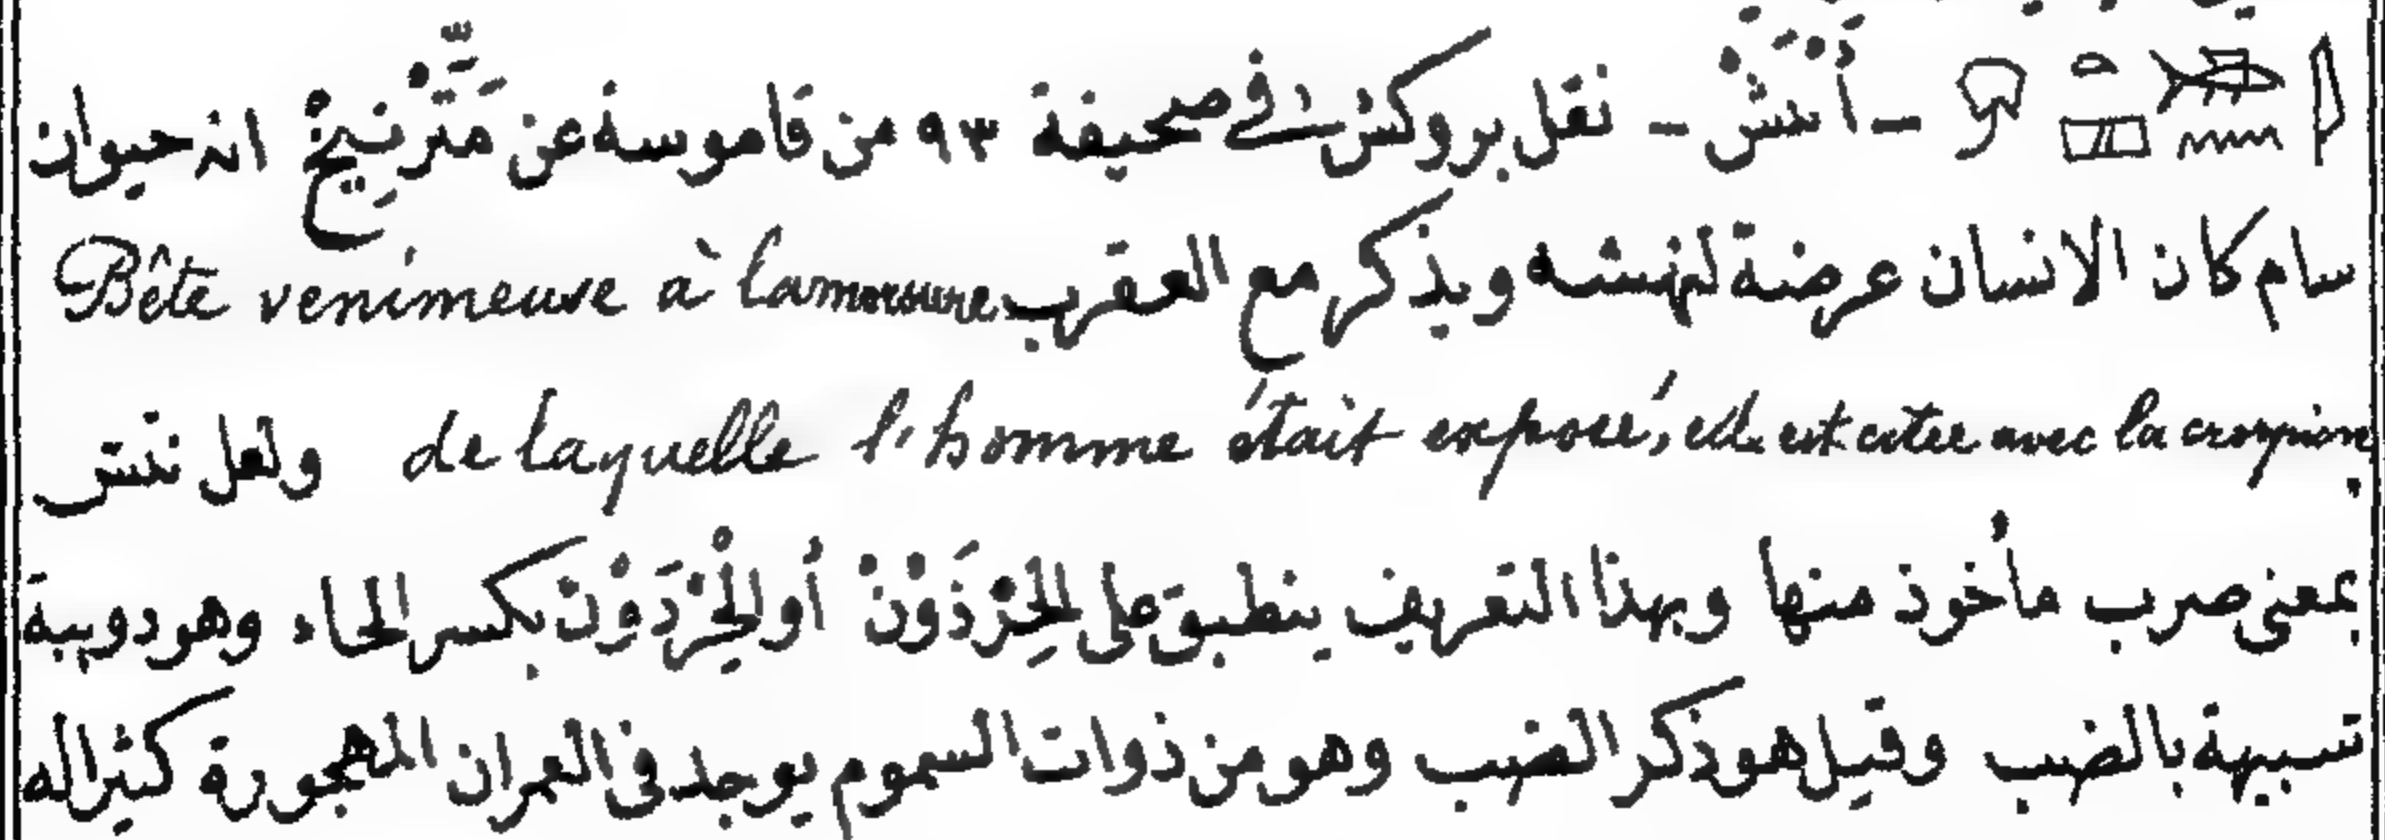 – أَنْتَشْ – نقل بروكش في صحيفة ٩٣ من قاموسه عن مَتَّرْنِيخْ انه حيوان
سام كان الانسان عرضة لنهشه ويذكر مع العقرب Bête venimeuse à la morsure
de laquelle l'homme était exposé, elle est citée avec la scorpion ولعل نتش
بمعنى ضرب مأخوذ منها وبهذا التعريف ينطبق على الحِرْذَوْنْ أو الحِرْدَوْنْ بكسر الحاء وهو دويبة
شبيهة بالضب وقيل هو ذكر الضب وهو من ذوات السموم يوجد في العمران المهجورة كثيرا له